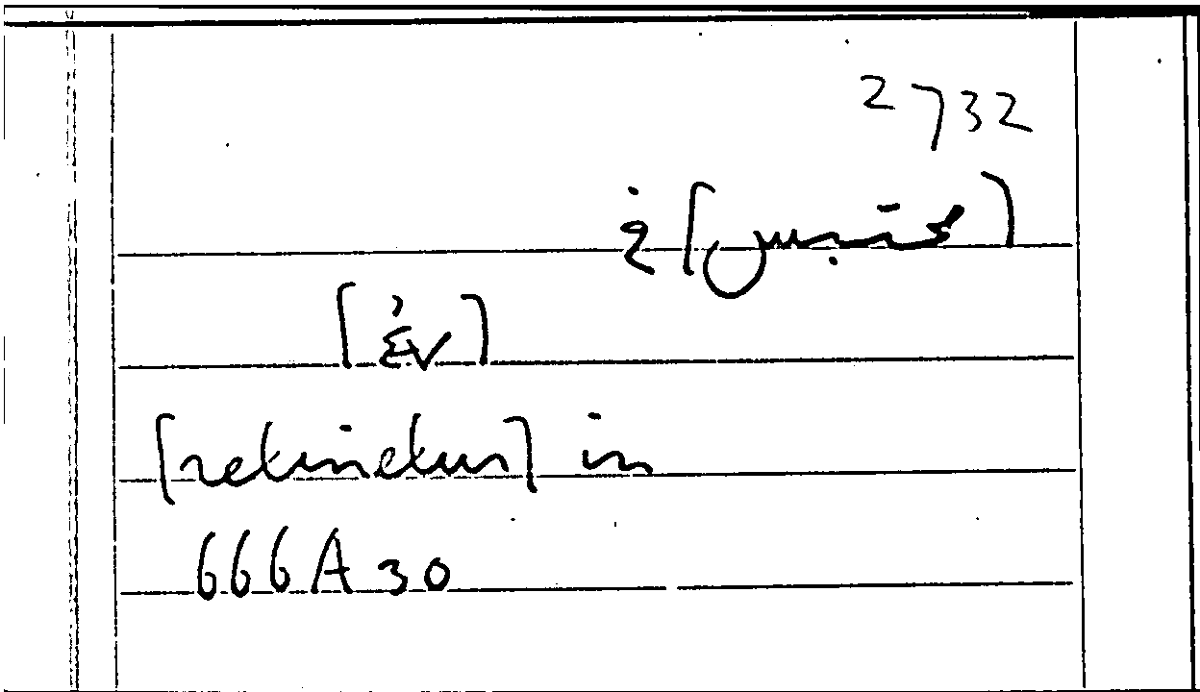 2732
[ ] في
[ἐν]
[retinetur] in
666A30